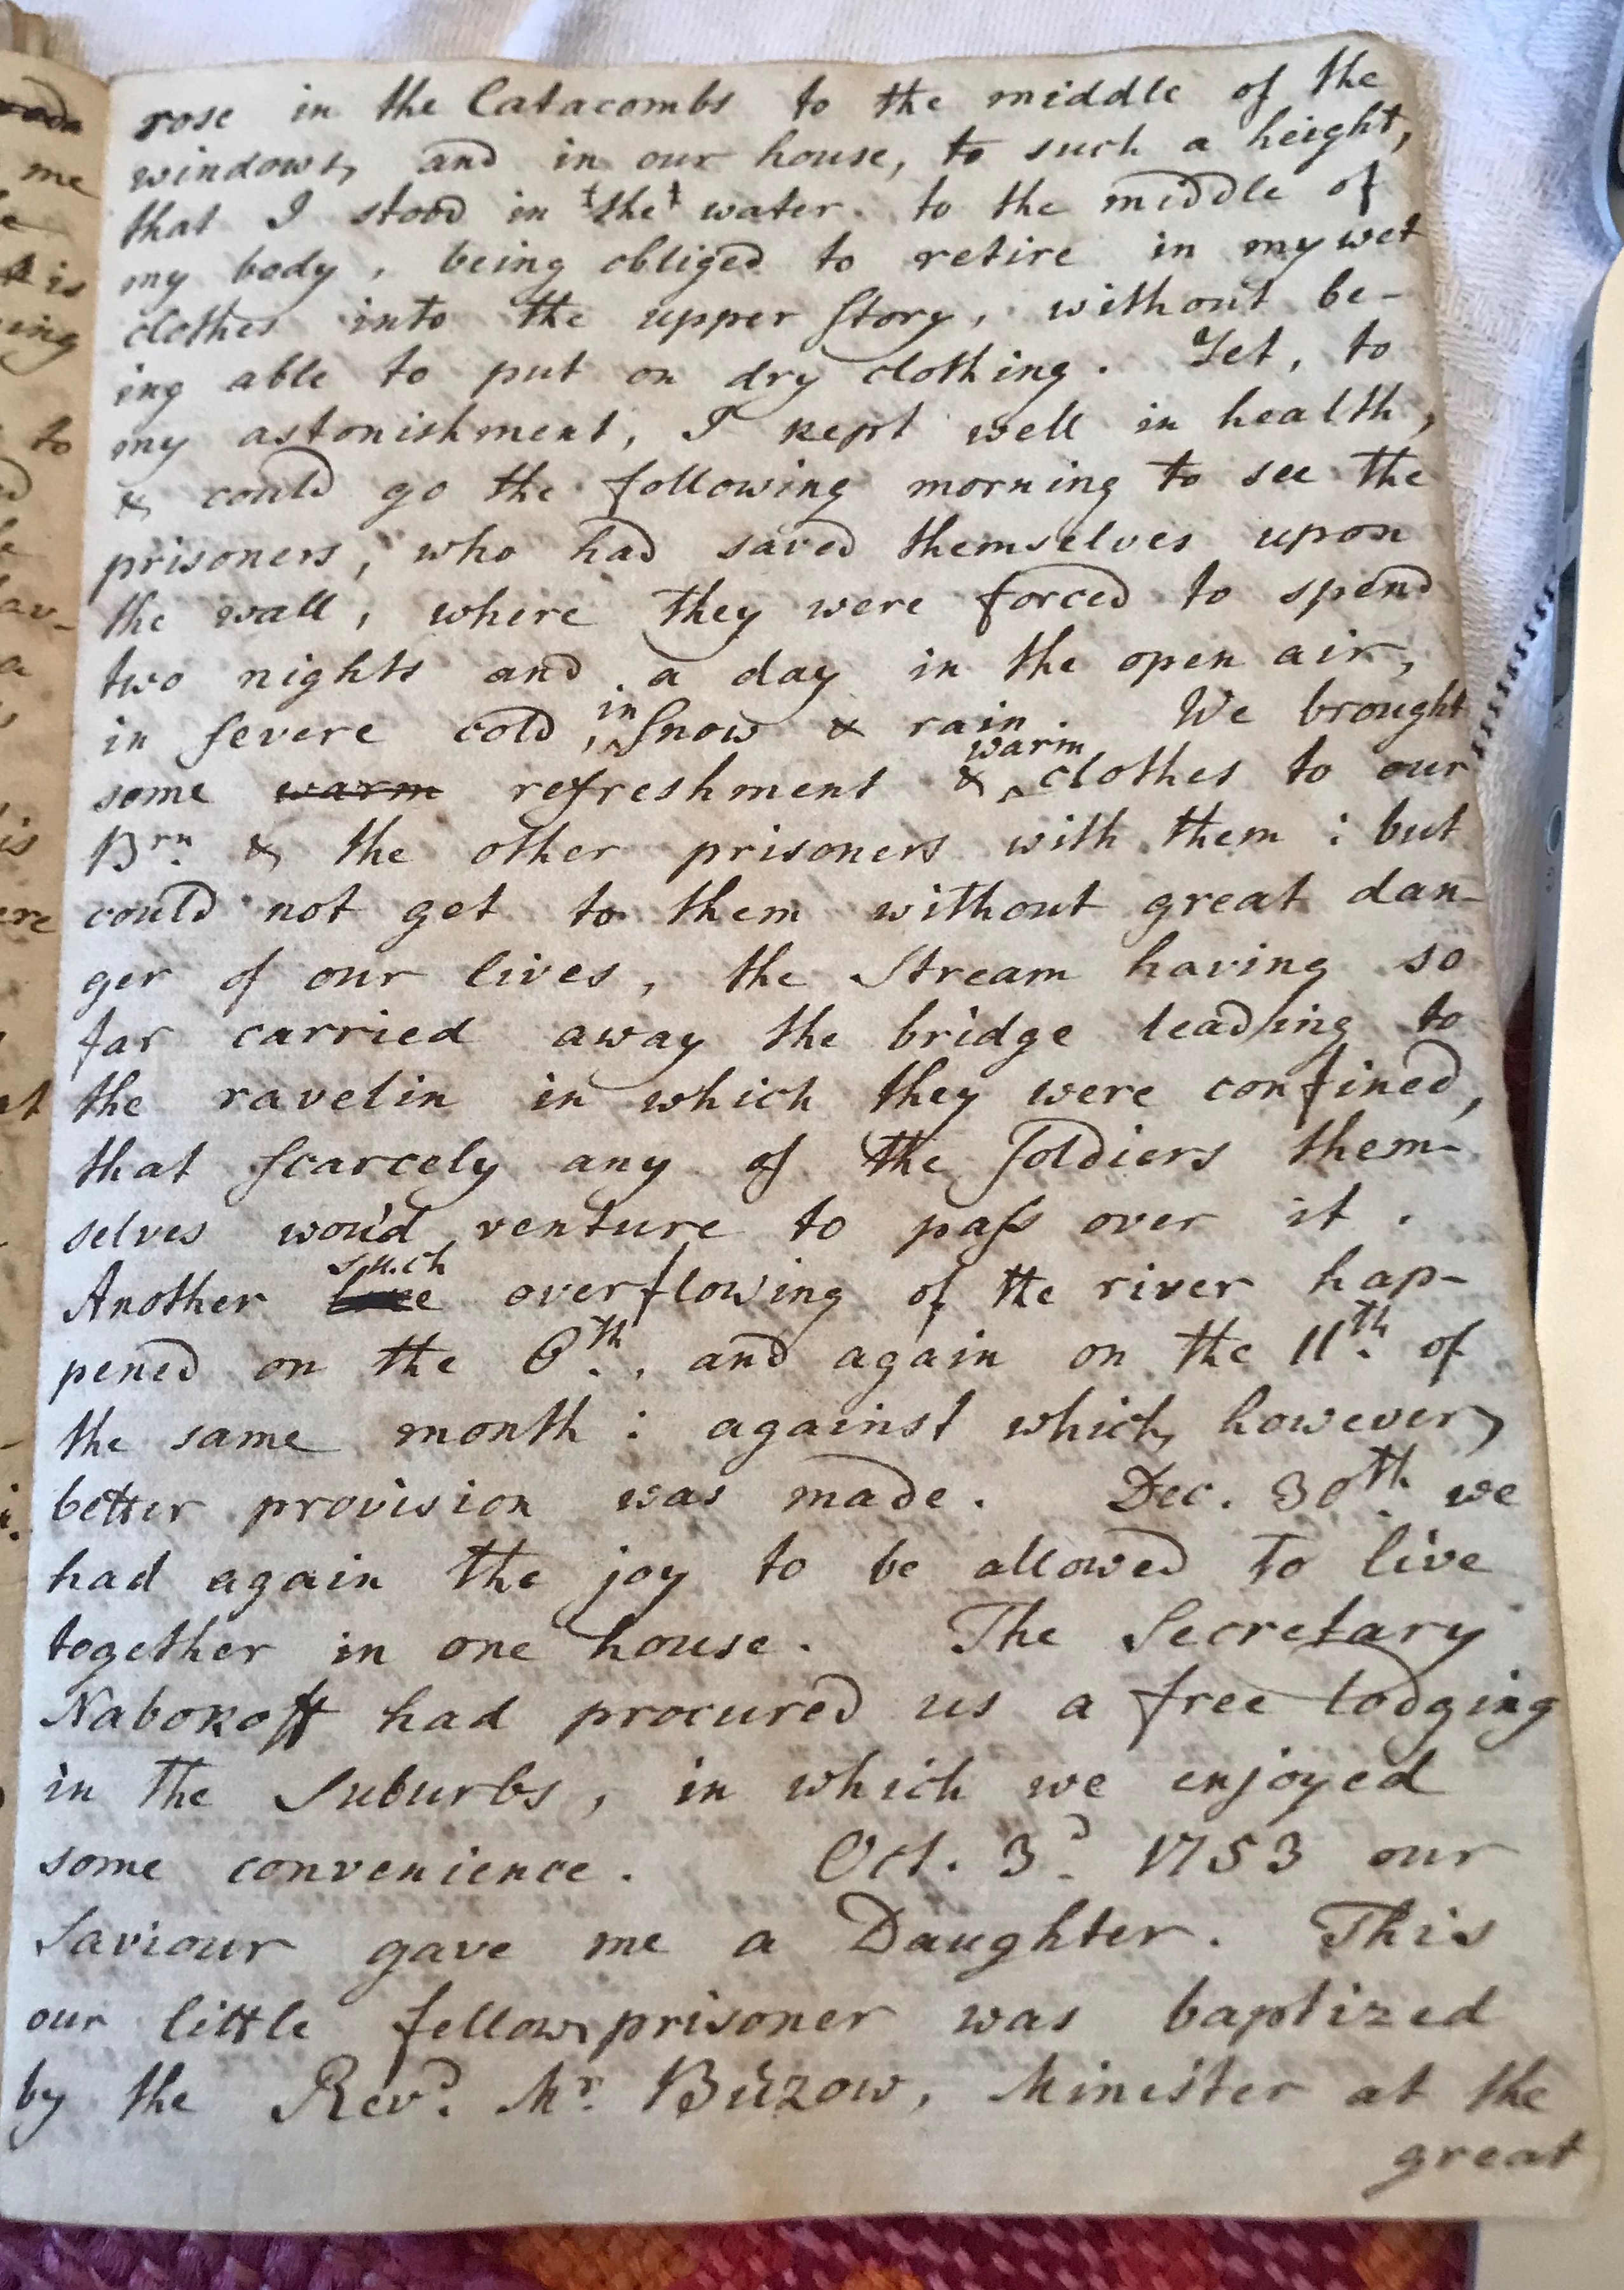 rose in the Catacombs to the middle of the
windows, and in our house, to such a height,
that I stood in the water to the middle of
my body, being obliged to retire in my wet
clothes into the upper Story, without be-
ing able to put on dry clothing. Yet, to
my astonishment, I kept well in health,
& could go the following morning to see the
prisoners, who had saved themselves upon
the wall, where they were forced to spend
two nights and a day in the open air,
in severe cold, in Snow & rain. We brought
some warm refreshment & warm clothes to our
Brn. & the other prisoners with them: but
could not get to them without great dan-
ger of our lives, the Stream having so
far carried away the bridge leading to
the ravelin in which they were confined,
that scarcely any of the Soldiers them-
selves wou'd venture to pass over it.
Another such overflowing of the river hap-
pened on the 6th., and again on the 11th. of
the same month: against which, however,
better provision was made. Dec. 30th. we
had again the joy to be allowed to live
together in one house. The Secretary
Nabokoff had procured us a free lodging
in the Suburbs, in which we enjoyed
some convenience. Oct. 3d. 1753 our
Saviour gave me a Daughter. This
our little fellow prisoner was baptized
by the Revd. Mr. Büzow, Minister at the
great